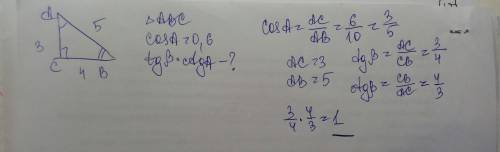 A
5
3
C
4
B
△ABC
cosA=0,6
tgB·ctgA-?
cosA= AC/AB = 6/10 = 3/5
AC=3
AB=5
tgB= AC/CB = 3/4
ctgB= CB/AC = 4/3
3/4 · 4/3 = 1